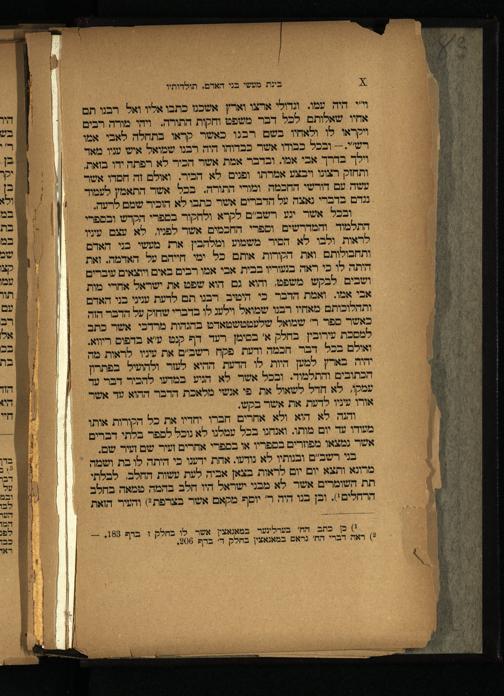 X
בינת מעשי בני האדם. תולדותיו
וי״י היה עמו. וגדולי ארצו וארץ אשכנז כתבו אליו ואל רבנו תם
אחיו שאלותם לכל דבר משפט וחקות התורה. ויהי מורה רבים
ויקראו לו ולאחיו בשם רבנו כאשר קראו בתחלה לאבי אמו
רש״י. — ובכל כבודו אשר כבדוהו היה רבנו שמואל איש עניו מאד
וילך בדרך אבי אמו. ובדבר אמת אשר הכיר לא רפתה ידו בזאת.
ותחזק רצונו ויבצע אמרתו ופנים לא הכיר. ואולם זה חסדו אשר
עשה עם דורשי החכמה ומורי התורה. בכל אשר התאמץ לעמוד
נגדם בדברי נאצה על הדברים אשר כתבו לא הזכיר שמם לרעה.
ובכל אשר יגע רשב״ם לקרא ולחקור בספרי הקדש ובספרי
התלמוד והמדרשים וספרי החכמים אשר לפניו, לא עצם עיניו
לראות ולבו לא הסיר משמוע ומלהבין את מעשי בני האדם
ותחבולותם ואת הקורות אותם כל ימי חייהם על האדמה. ואת
היתה לו כי ראה בנעוריו בבית אבי אמו רבים באים ויוצאים עוברים
ושבים לבקש משפט. והוא גם הוא שפט את ישראל אחרי מות
אבי אמו. ואמת הדבר כי היטיב רבנו תם לדעת עניני בני האדם
ותהלוכותם מאחיו רבנו שמואל וילעג לו בדברי שחוק על הדבר הזה
כאשר ספר ר׳ שמואל שלעטטשטאדט בהגהות מרדכי אשר כתב
למסכת עירובין בחלק א׳ בסימן רעד דף קנט ע״א בדפוס ריווא.
ואולם בכל דבר חכמה ודעת פקח רשב״ם את עיניו לראות מה
יהיה בארץ למען היות לו הדעת ההיא לעזר ולהועיל בפתרון
הכתובים והתלמוד. ובכל אשר לא הגיע במדעו להכיר דבר עד
עמקו, לא חדל לשאול את פי אנשי מלאכת הדבר ההוא עד אשר
אורו עיניו לדעת את אשר בקש.
והנה לא הוא ולא אחרים חברו יחדיו את כל הקורות אותו
מעודו עד יום מותו. ואנחנו בכל עמלנו לא נוכל לספר בלתי דברים
אשר נמצאו מפוזרים בספריו או בספרי אחרים זעיר שם זעיר שם.
בני רשב״ם ובנותיו לא נודעו. אחת ידענו כי היתה לו בת ושמה
מרונא ותצא יום יום לראות בצאן אביה לעת עשות החלב. לבלתי
תת השומרים אשר לא מבני ישראל היו חלב בהמה טמאה בחלב
הרחלים¹). וכן בנו היה ר׳ יוסף מקאם אשר בצרפת²) והעיר הזאת
¹) כן כתב הח׳ בערלינער במאגאצין אשר לו בחלק ז׳ ברף 183. —
²) ראה דברי הח׳ גראס במאגאצין בחלק ד׳ ברף 206.